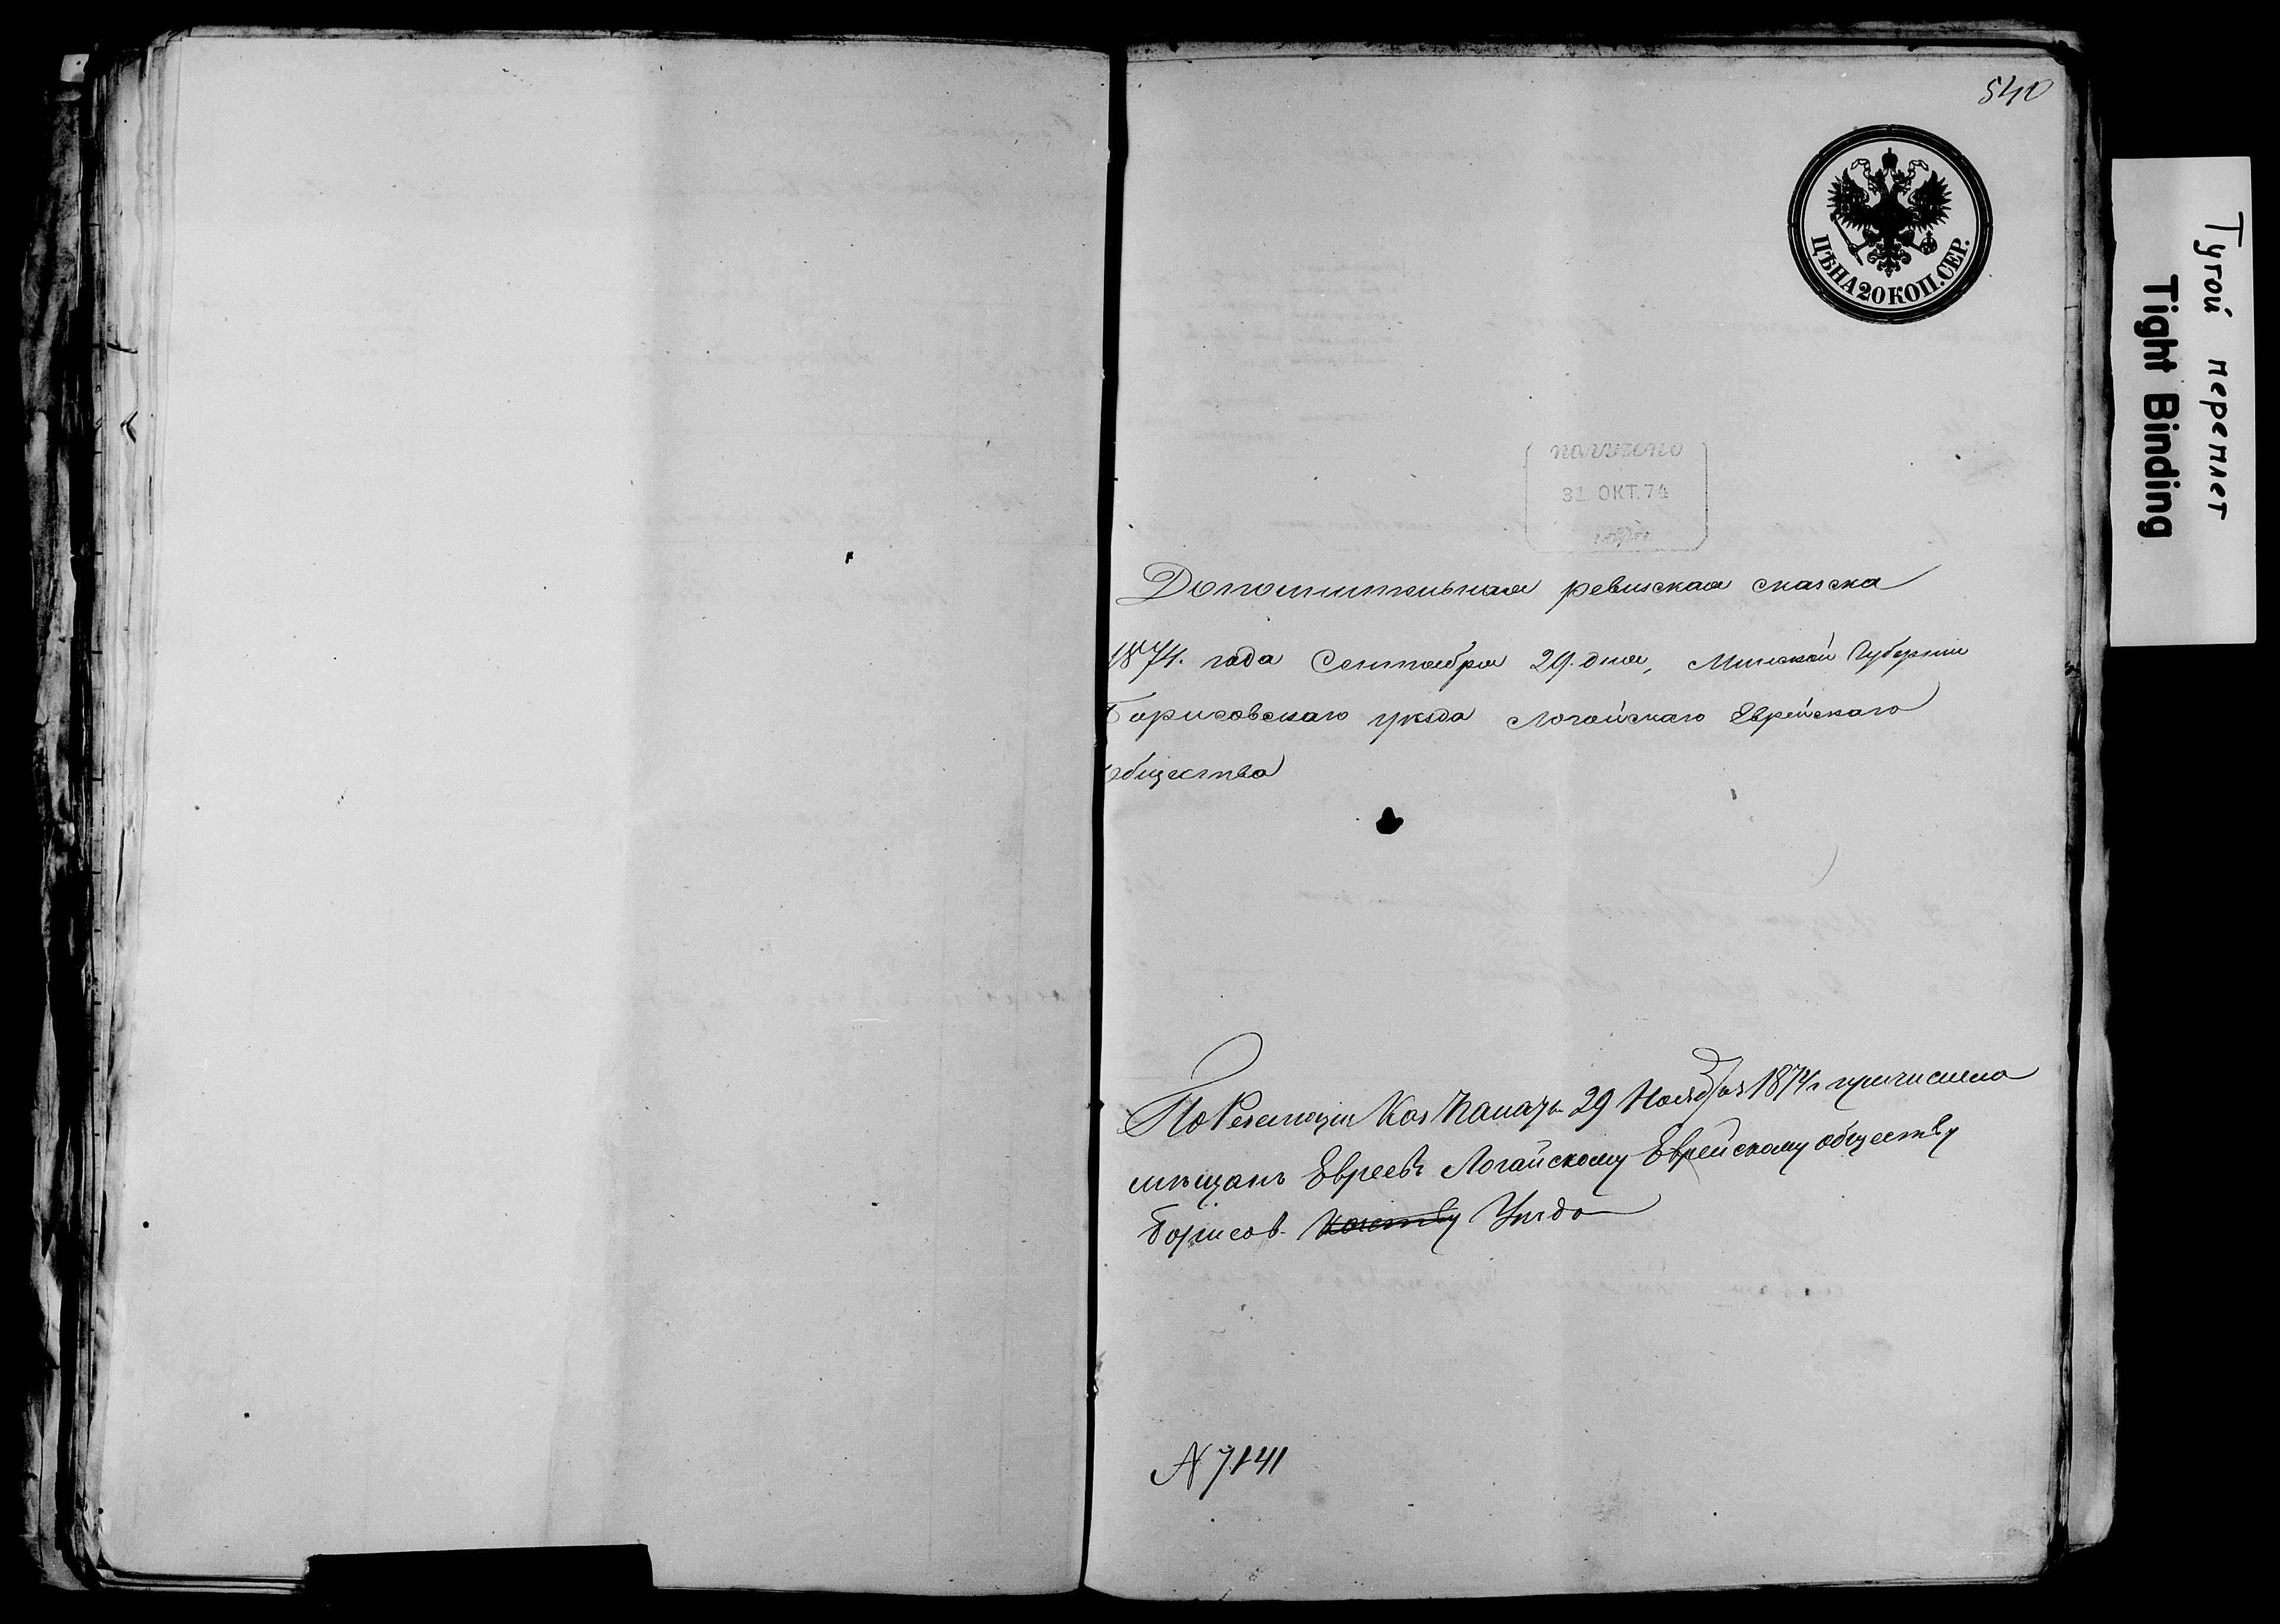 540
ЦѢНА 20 КОП. СЕР.
Тугой переплет
Tight Binding
получено
31 ОКТ. 74
Дополнительная ревизская сказка
1874. года Сентября 29. дня, Минской Губернии
Борисовскаго уѣзда Логойскаго Еврейскаго
общества
По Резолюціи Каз Палаты 29 Ноября 1874 г причислена
мѣщанъ Евреевъ Логойскому Еврейскому обществу
Борисов. Уѣзда
N 7141